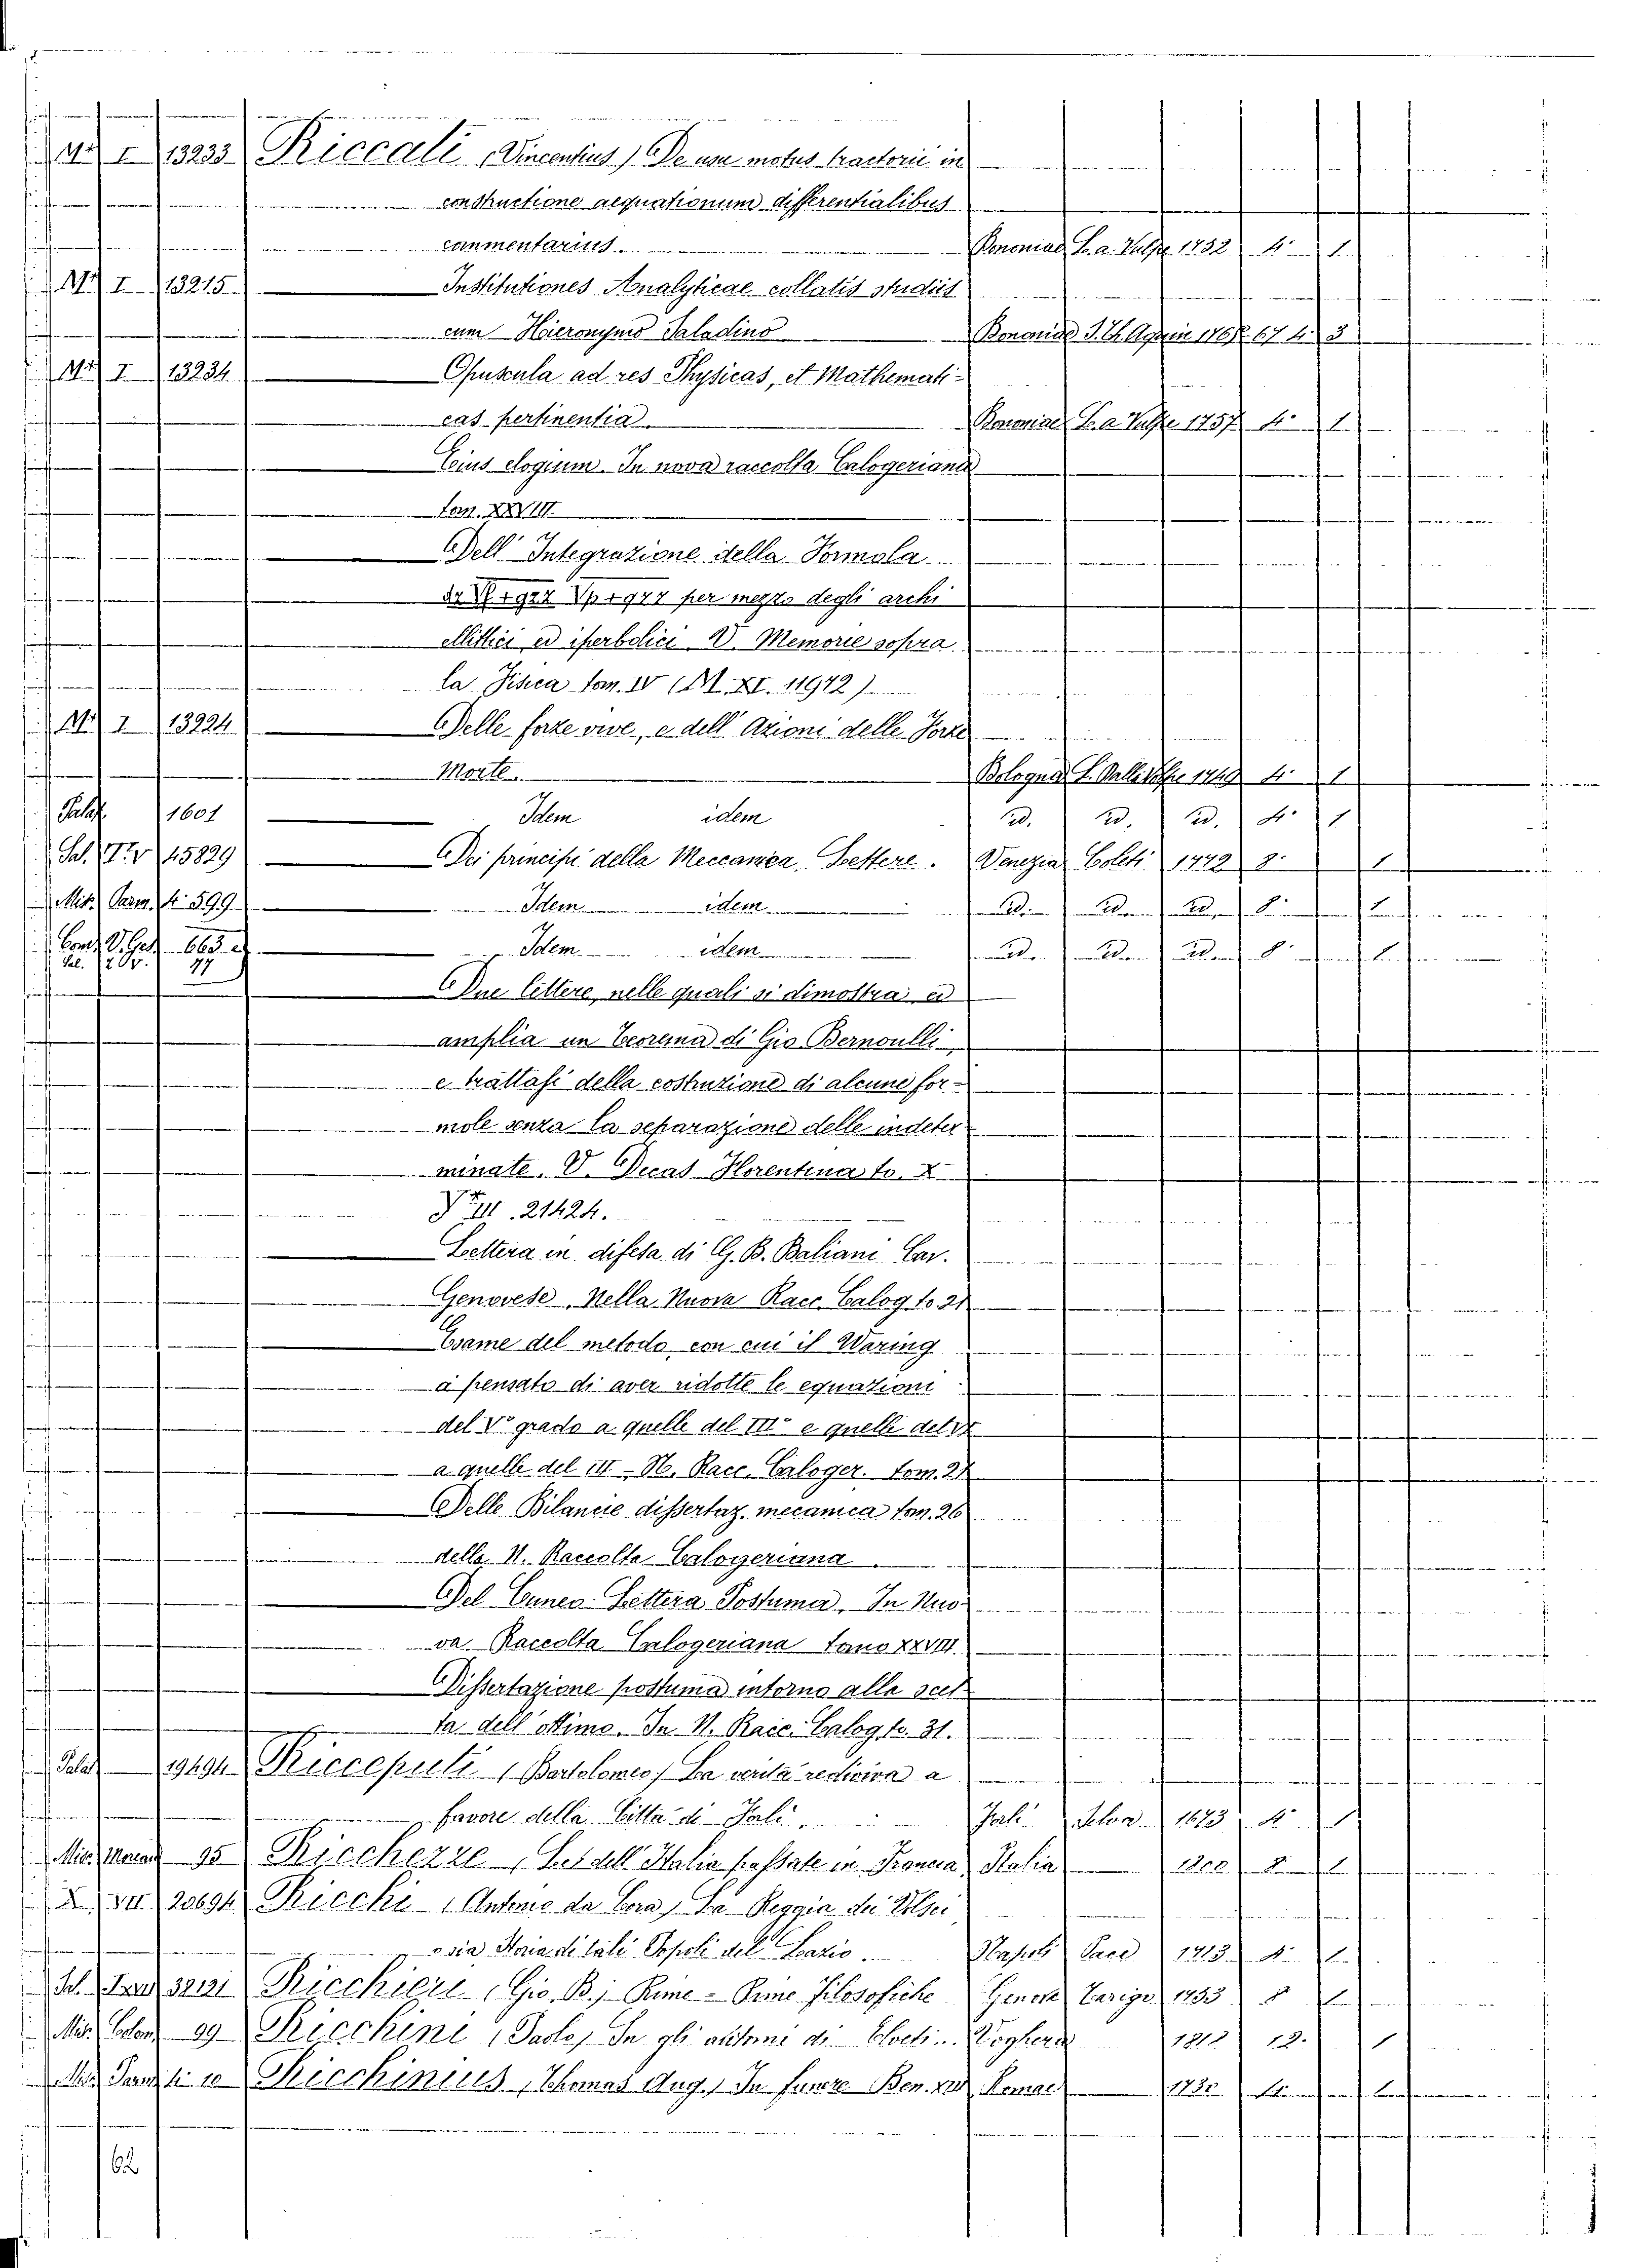 I 13233 Riccati (Vincentius) De usu motus tractorii in
constructione aequationum differentialibus
commentarius. Bononiae L. a Vulpe 1752 4° 1
I 13215 Institutiones Analyticae collatis studiis
cum Hieronymo Saladino Bononiae 67 4° 3
I 13234 Opuscula ad res Physicas, et Mathemati-
cas pertinentia Bononiae L. a Vulpe 1757 4° 1
Eius elogium. In nova raccolta Calogeriana
tom. XXVIII.
Dell' Integrazione della Formola
per mezzo degli archi
ellittici ed iperbolici V. Memorie sopra
la Fisica tom. IV (M. XI. 11942)
I 13224 Delle forze vive, e dell' Azioni delle Forze
Morte. Bologna 1749 4° 1
Palat. 1601 Idem idem id. id. id. 4° 1
45829 Dei principi della Meccanica, Lettere. Venezia Coleti 1772 8° 1
Mis. Parm. 4° 599 Idem idem id. id. id. 8° 1
663 Idem idem id. id. id. 8° 1
77
Due lettere, nelle quali si dimostra ed
amplia un teorema di Gio Bernoulli
e trattasi della costruzione di alcune for-
mole senza la separazione delle indeter
minate. V. Decas Florentina to. X
21424.
Lettera in difesa di G. B. Baliani Cav.
Genovese. Nella Nuova Racc. Calog to 21
Esame del metodo con cui il Waring
à pensato di aver ridotte le equationi
del V° grado a quelle del III° e quelle del IV
a quelle del III - N. Racc. Caloger. tom. 21
Delle Bilancie dissertaz. mecanica tom. 26
della N. Raccolta Calogeriana
Del Cuneo Lettera Postuma. In Nuo-
va Raccolta Calogeriana tomo XXVIII.
Dissertazione postuma intorno alla scel
ta dell' ottimo. In N. Racc. Calog to. 31.
Palat 19494 Riccepuli (Bartolomeo) La verità rediviva a
favore della Citta di Jali. Jali 1673 4° 1
95 Ricchezze (Le) dell' Italia passate in Francia Italia 1800 8° 1
X VII 20694 Ricchi (Antonio da Cora) La Reggia dei Volsci
o sia Storia di tali Popoli del Lazio. Napoli 1713 4° 1
32121 Ricchieri (Gio. B.) Rime - Rime Filosofiche Genova 1753 8° 1
Mis. 99 Ricchini (Paolo) In gli Voghera 12. 1
10 Ricchinius (Thomas Aug.) In funere Ben. XIII Romae 1730 4° 1
62